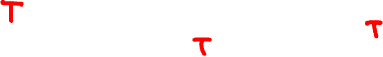 T T
T